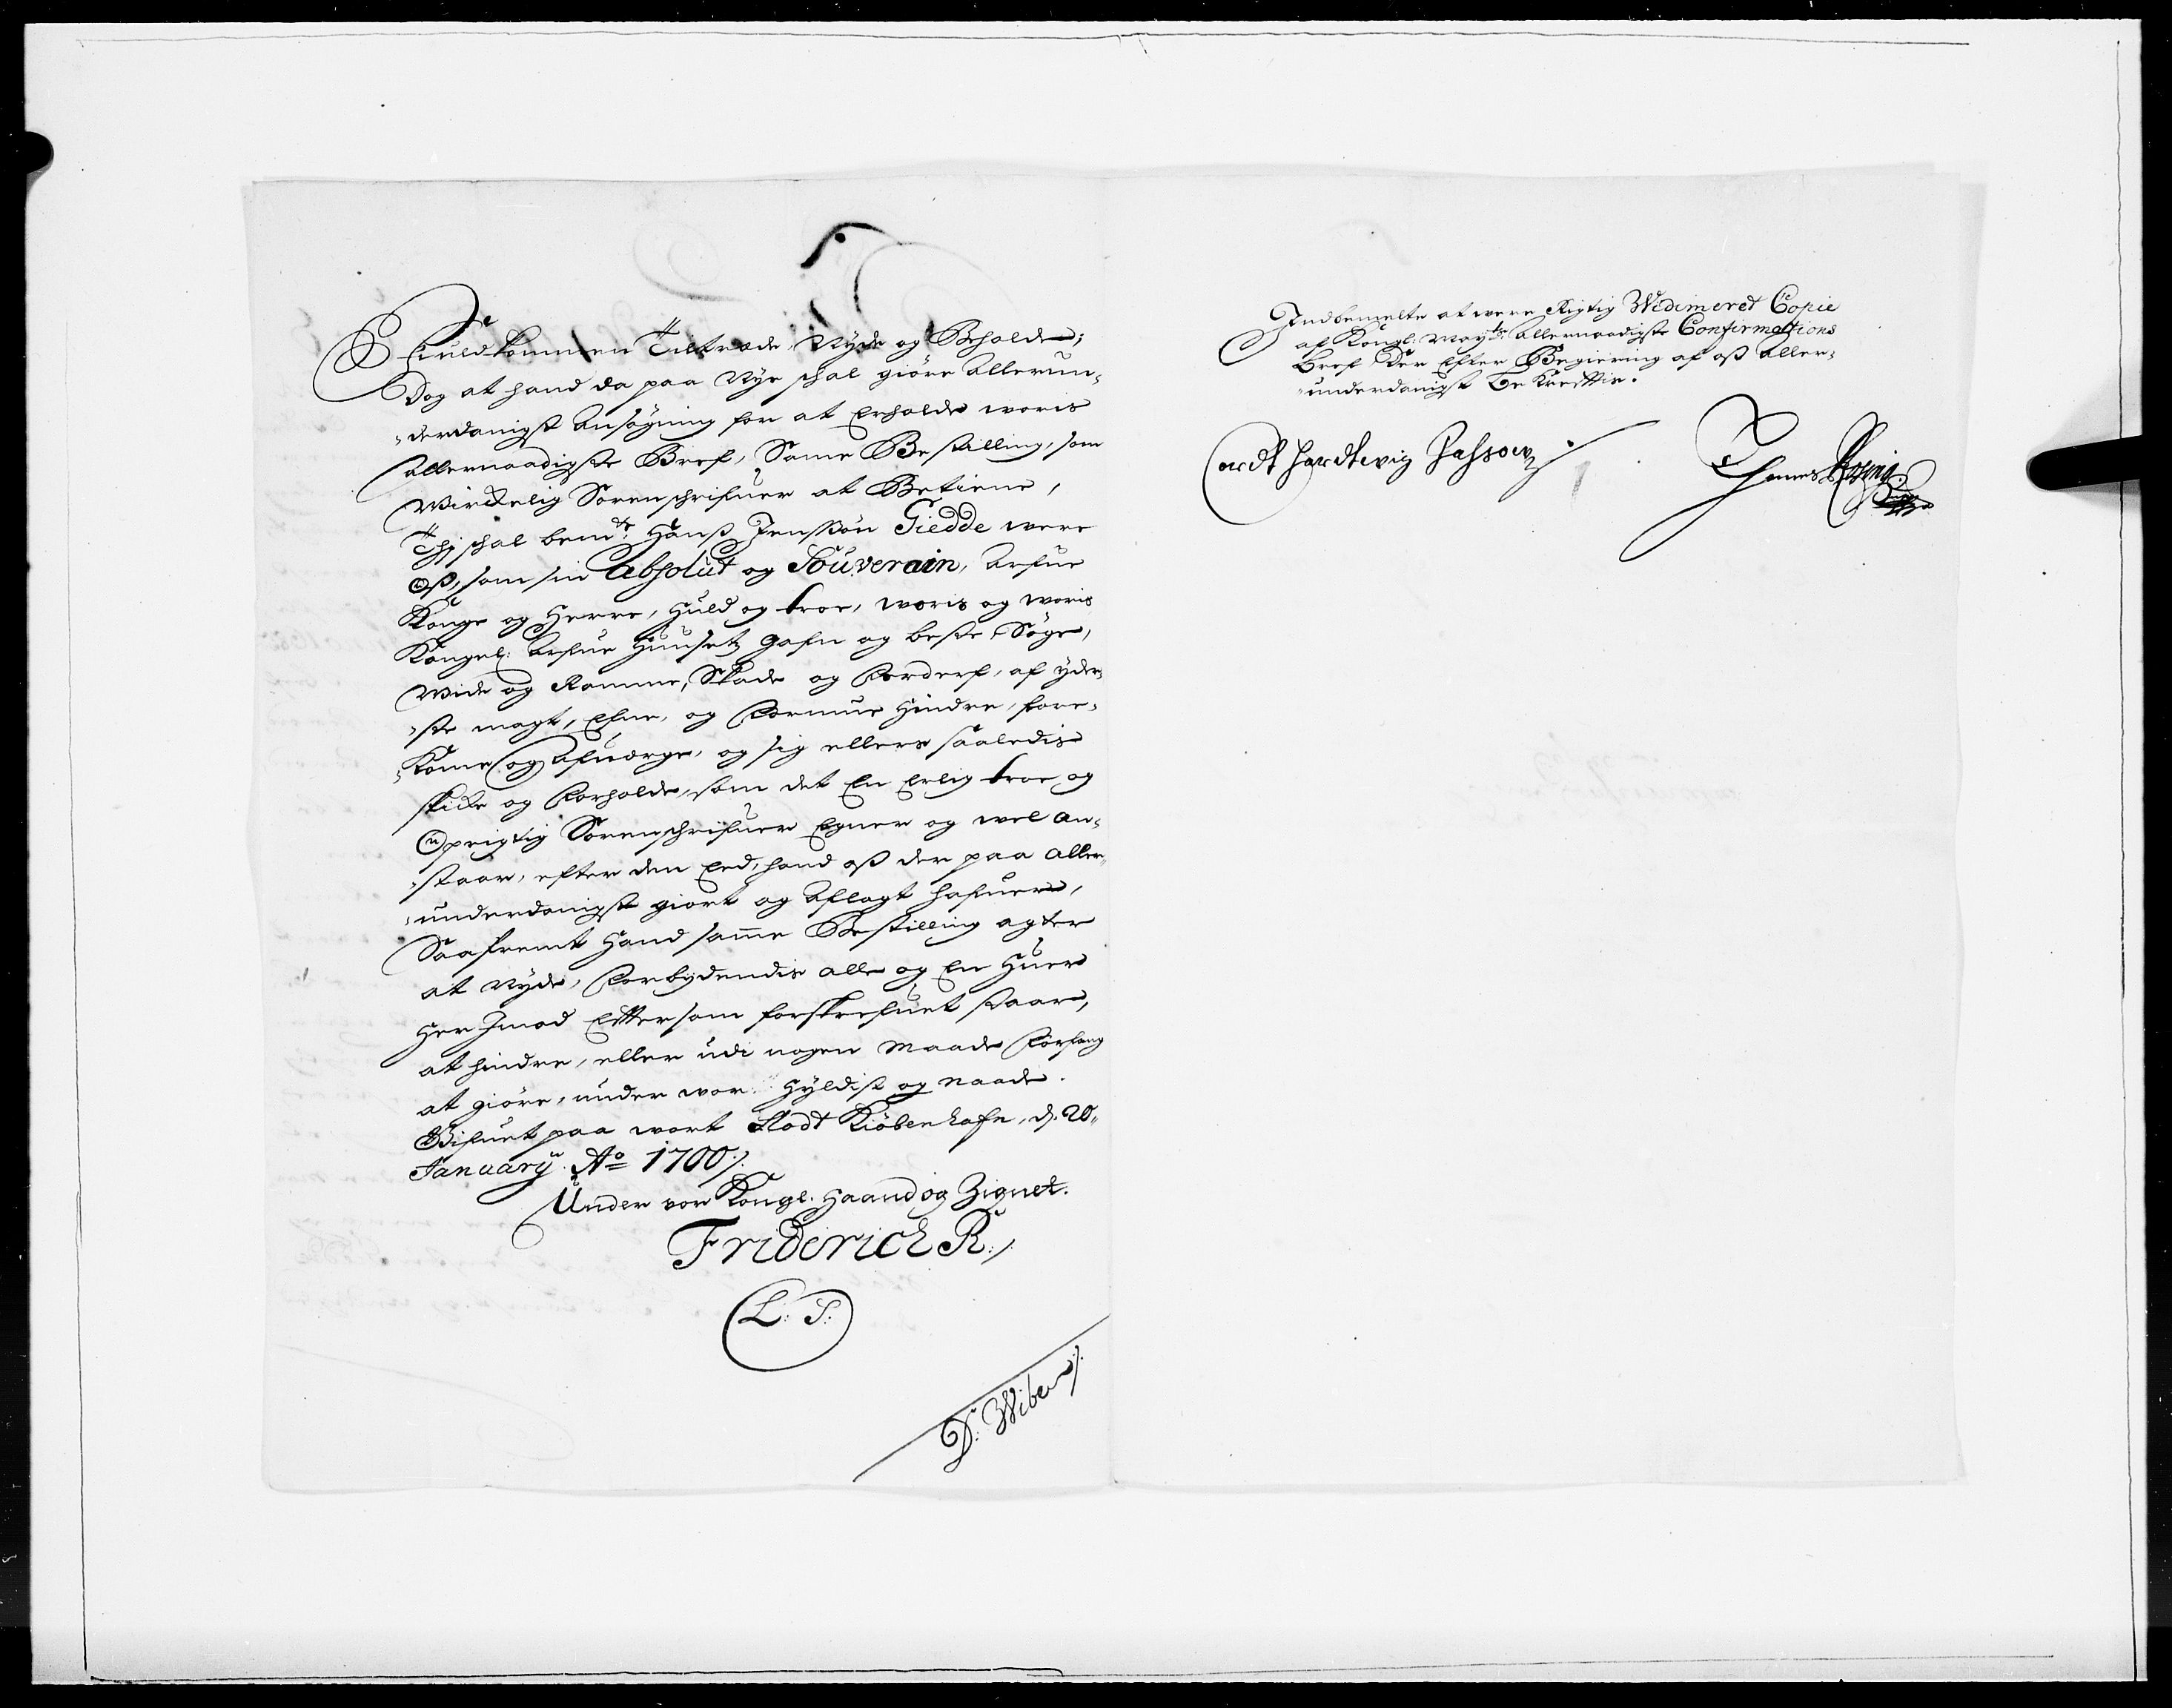 Fuldkommen Tiltræde, Nyde og Beholde;
Dog at hand da paa Nye schal giøre allerun-
derdanigst Ansøgning for at Erholde woris
allernaadigste Bref, Samme Bestilling, som
Wirckelig Sorenschrifuer at Betiene,
Thj schal bemte Hans Jenssøn Giedde were
Oß, som sin Absolut og Souverain, Arfue
Konge og Herre, Huld og troe, woris og woris
Kongel: Arfue Huusetz gafn og beste Søge,
Wide og Ramme, Skade og Forderf, af yder-
ste magt, Efne, og Formue Hindre, fore-
komme og afwærge, og sig ellers saaledis
skicke og Forholde, som det En Erlig troe og
Oprigtig Sorenschrifuer Egner og wel an-
staar, efter den Eed, hand oß der paa aller-
underdanigst giort og Aflagt hafuer,
Saafremt Hand samme Bestilling agter
at Nyde, Forbydendis alle og En Huer
Her Imod Efftersom forskrefuet staar,
at hindre, eller udi nogen Maade Forfang
at giøre, under wor Hyldist og Naade.
Gifuet paa wort Slodt Kiøbenhafn, d. 20
January Ao 1700 /.
Under vor Kongl. Haand og Zignet.
Friderich R: /.
L: S:
D: Wibe /.
Indbemelte at were Rigtig Widimeret Copie
af Kongl: Mayts: allernaadigste Confirmations
Bref der Efter Begiering af oß aller-
underdanigst Bekreftis.
Cordt Hardtwig Passow